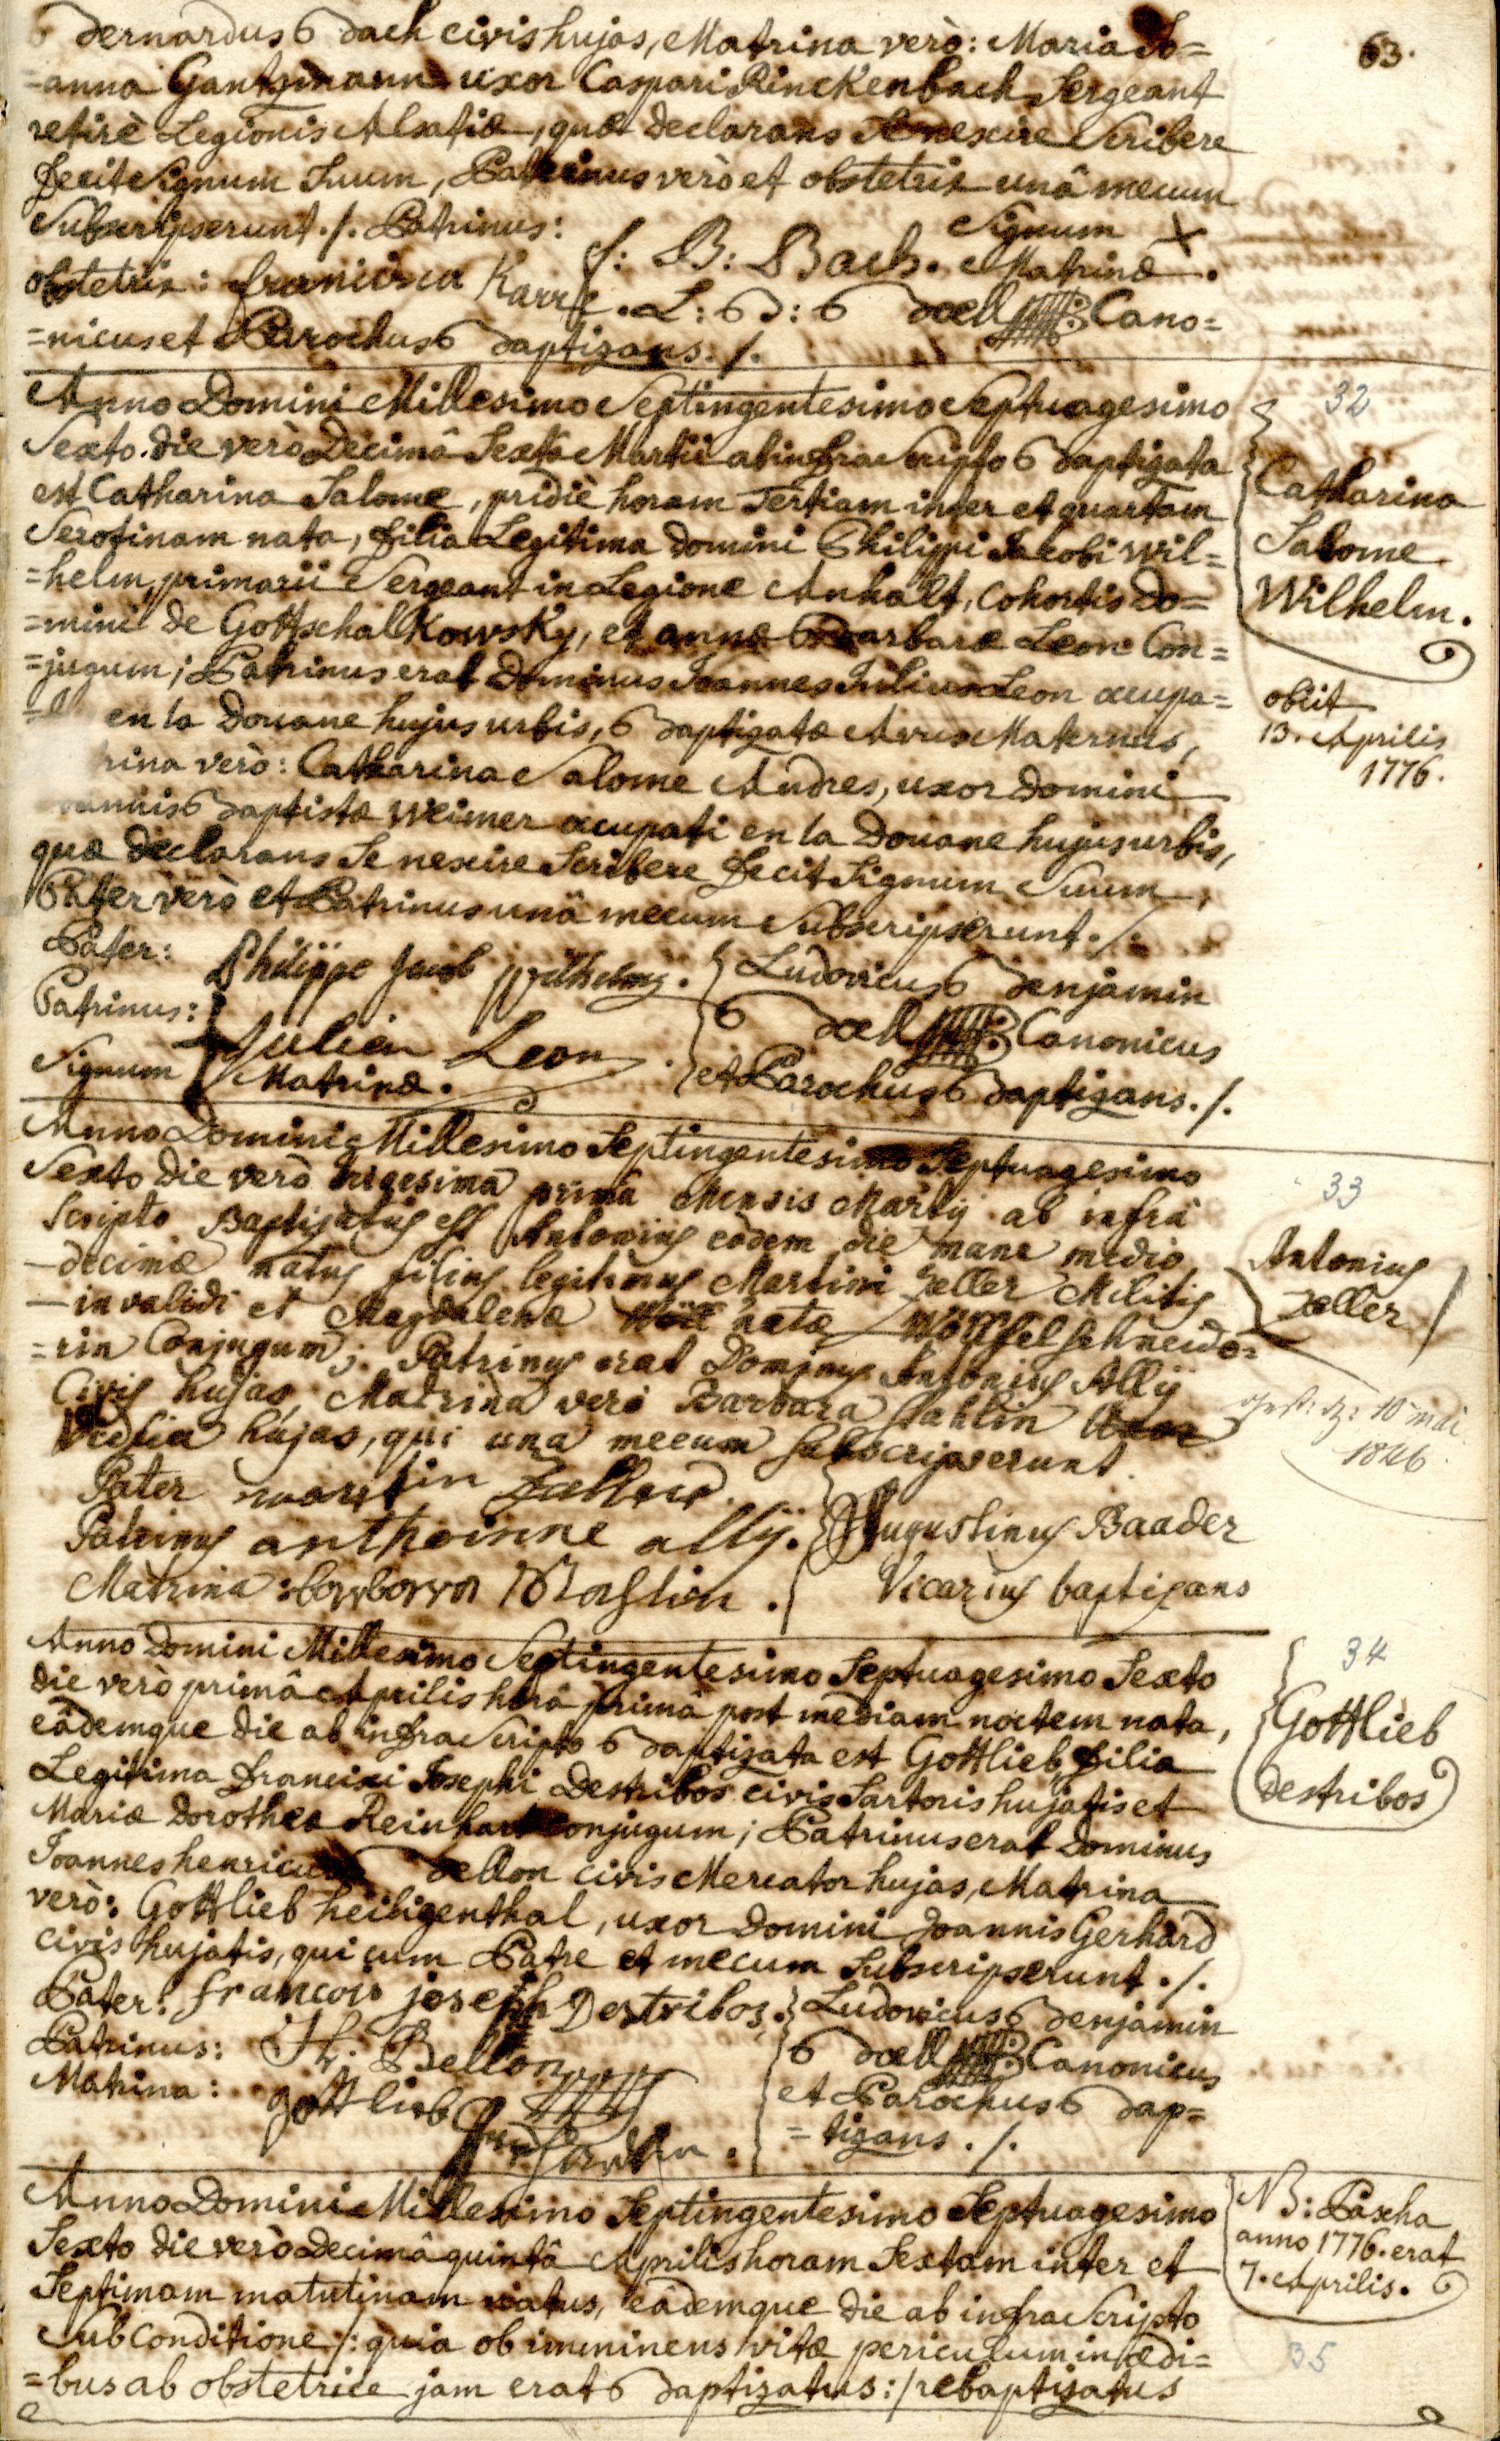 Bernardus Bach civis hujas, Matrina verò: Maria Jo=
63.
=anna Gantzmann uxor Caspari Rinckenbach Sergeant
retirè Legionis Alsatiæ, quæ declarans se nescire scribere
fecit signum suum, Patrinus verò et obstetrix unâ mecum
subscripserunt ./. Patrinus: f: B: Bach. Signum X
Matrinæ.
obstetrix: francisca Karrs. L: B: Boell Cano=
=nicus et Parochus Baptizans ./.
Anno Domini Millesimo Septingentesimo Septuagesimo
Sexto. die verò Decimâ Sexta Martii ab infra scripto Baptizata
est Catharina Salome, pridiè horam Tertiam inter et quartam
Serotinam nata, filia Legitima Domini Philippi Jakobi Wil=
=helm, primarii Sergeant in Legione Anhalt, cohortis Do=
=mini de Gottschalkowsky, et annæ Barbaræ Leon Con=
=jugum; Patrinus erat Dominus Joannes Julius Leon occupa=
en la Douane hujus urbis, Baptizatæ Avus Maternus,
rina verò: Catharina Salome Andres, uxor Domini
oannis Baptistæ Weimer occupati en la Douane hujus urbis,
quæ declarans se nescire scribere fecit signum suum,
Pater verò et Patrinus unâ mecum subscripserunt ./.
Pater: Philippe Jacob Wilhelm.
Patrinus: Julien Leon
Signum Matrinæ.
Ludovicus Benjamin
Boell Canonicus
et Parochus Baptizans ./.
32
Catharina
Salome
Wilhelm.
obiit
13. Aprilis
1776.
Anno Domini Millesimo Septingentesimo Septuagesimo
Sexto die verò trigesimâ primâ Mensis Martij ab infrà
Scripto Baptizatus est Antonius eôdem die mane mediò
-decimæ natus filius legitimus Martini Zeller Militis
-invalidi et Magdalenæ natæ Wolffelschneide=
=rin Conjugum; Patrinus erat Dominus Antonius Allij
Civis hujas, Matrina verò Barbara
hujas, qui unâ mecum subscripserunt.
Pater martin Zeller
Patrinus anthoinne allij.
Matrina: barbara
Augustinus Baader
Vicarius baptizans
33
Antonius
Zeller
10 mai
1846
Anno Domini Millesimo Septingentesimo Septuagesimo Sexto
die verò primâ Aprilis horâ primâ post mediam noctem nata,
eâdemque die ab infra scripto Baptizata est Gottlieb filia
Legitima Francisci Josephi Destribos civis Sartoris hujatis et
Mariæ Dorotheæ Reinhart conjugum; Patrinus erat Dominus
Joannes henricus Bellon civis Mercator hujas, Matrina
verò: Gottlieb heiligenthal, uxor Domini Joannis Gerhard
civis hujatis, qui cum Patre et mecum subscripserunt ./.
Pater: francois joseph Destribos.
Patrinus: H: Bellon
Matrina: gottlieb
Ludovicus Benjamin
Boell Canonicus
et Parochus Bap=
=tizans ./.
34
Gottlieb
Destribos
Anno Domini Millesimo Septingentesimo Septuagesimo
Sexto die verò Decimâ quintâ Aprilis horam Sextam inter et
Septimam matutinam natus, eâdemque die ab infra scripto
Sub Conditione /: quia ob imminens vitæ periculum in ædi=
=bus ab obstetrice jam erat Baptizatus :/ rebaptizatus
NB: Pascha
anno 1776. erat
7. Aprilis.
35